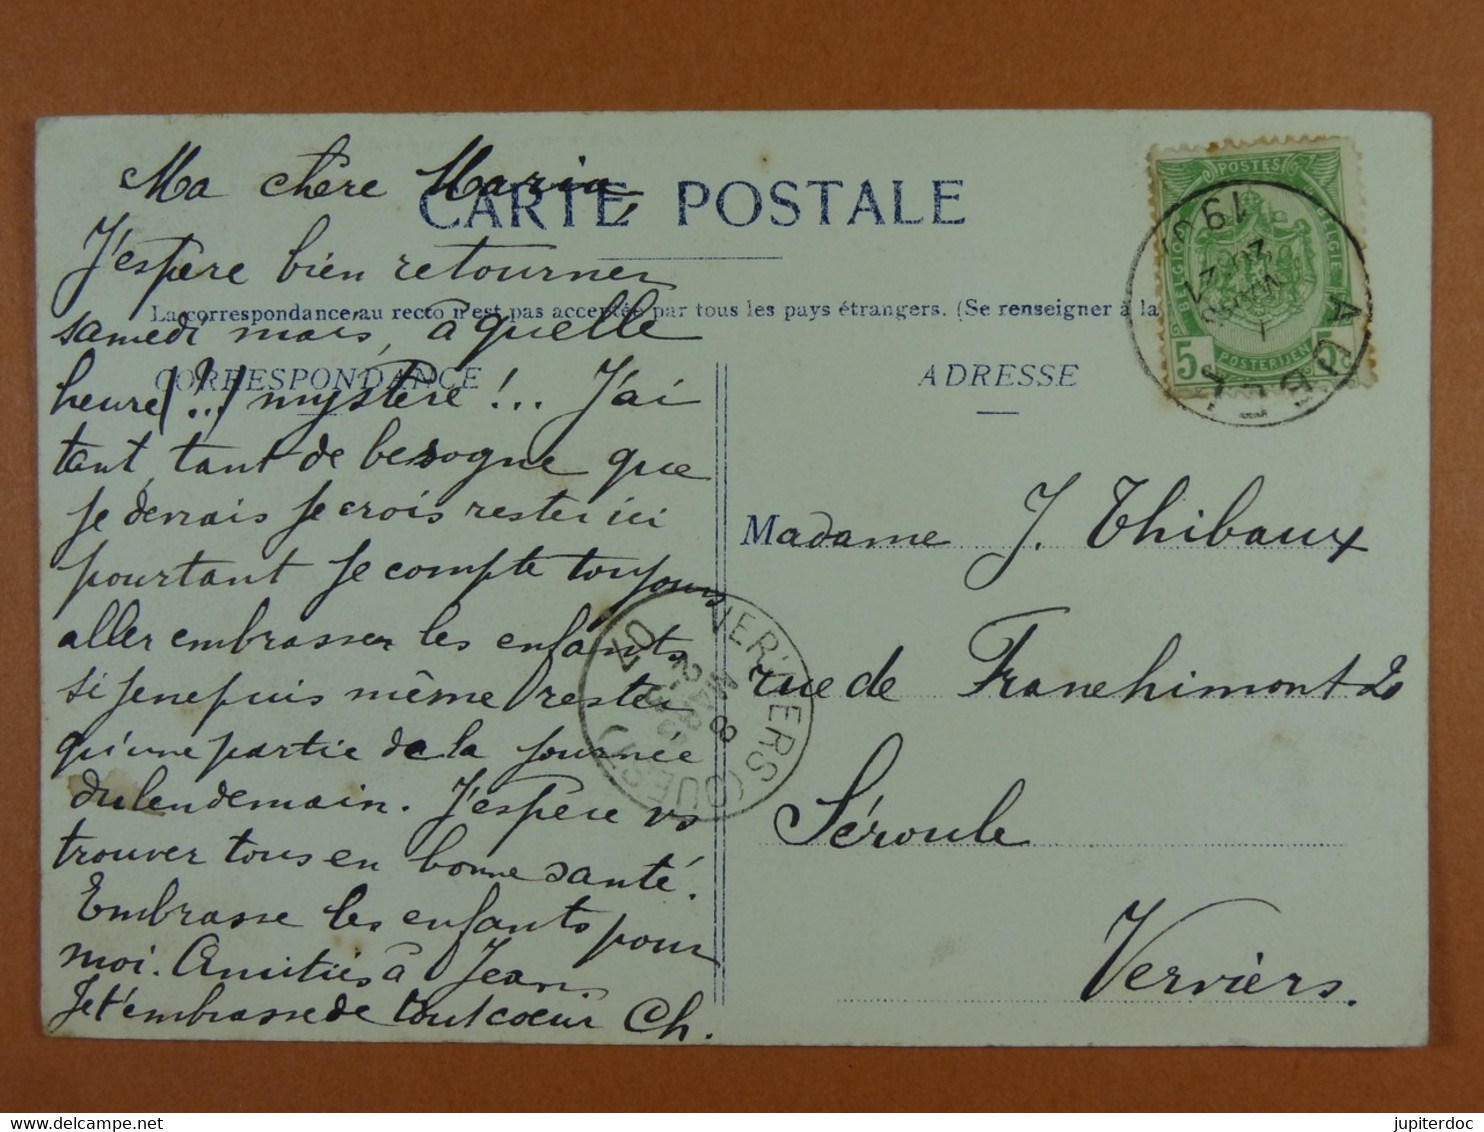 CARTE POSTALE
La correspondance au recto n'est pas acceptée par tous les pays étrangers. (Se renseigner à la
CORRESPONDANCE
ADRESSE
Ma chère Maria,
J'espère bien retourner
samedi mais, à quelle
heure (?..) mystère !... J'ai
tant, tant de besogne que
je devrais je crois rester ici
pourtant je compte toujours
aller embrasser les enfants
si je ne puis même rester
qu'une partie de la journée
du lendemain. J'espère vs
trouver tous en bonne santé.
Embrasse les enfants pour
moi. Amitiés à Jean.
Je t'embrasse de tout coeur Ch.
Madame J. Thibaux
rue de Franchimont 20
Séroule
Verviers.
POSTES
BELGIE
BELGIQUE
5 POSTERIJEN 5
AUBEL
VERVIERS (OUEST)
8
MARS
07
jupiterdoc